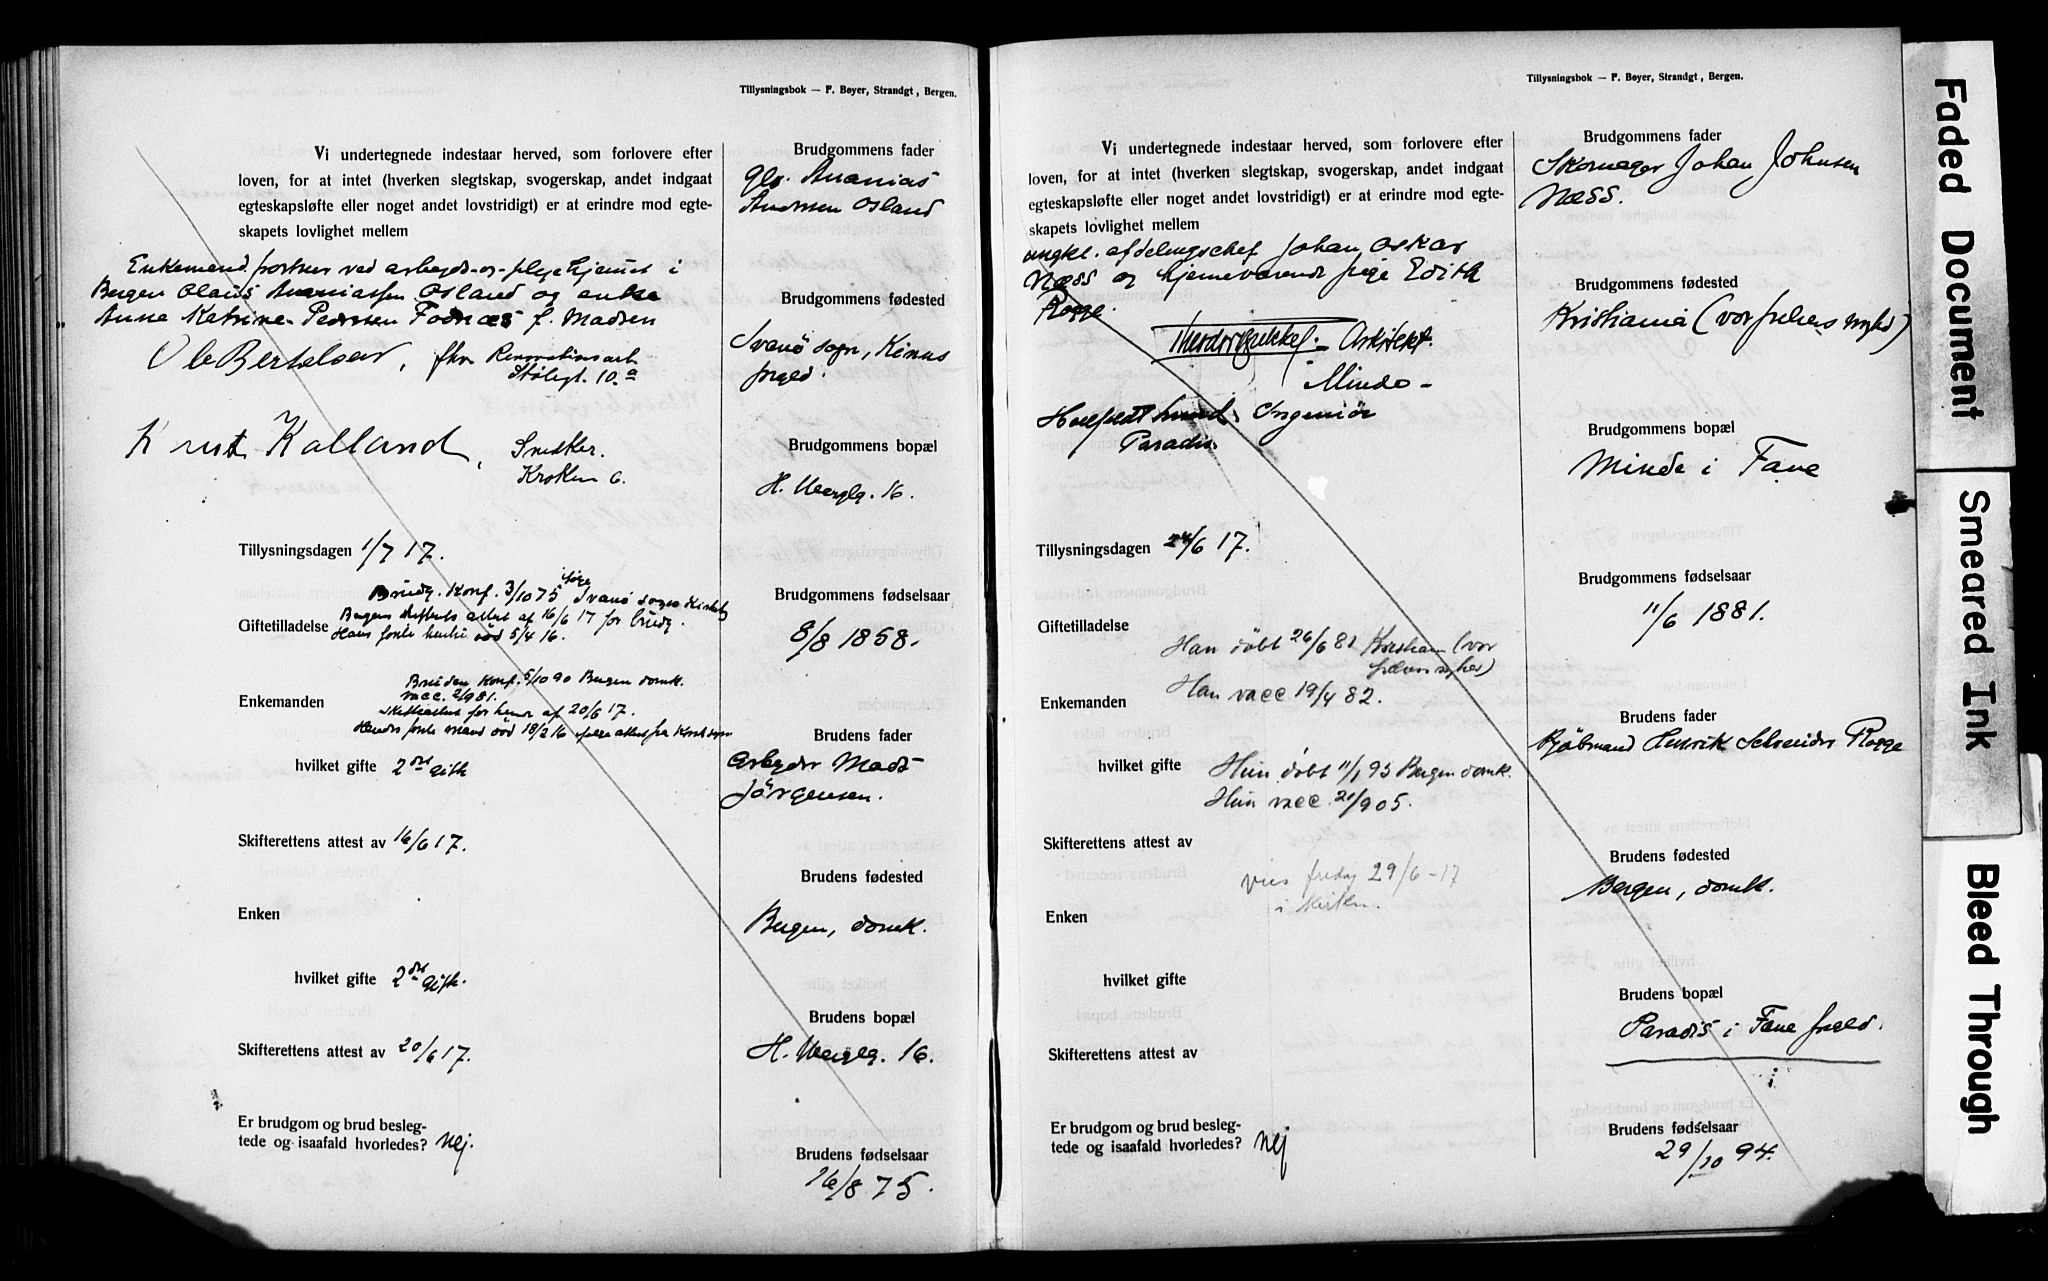 Tillysningsbok — F. Beyer, Strandgt, Bergen.
Vi undertegnede indestaar herved, som forlovere efter
loven, for at intet (hverken slegtskap, svogerskap, andet indgaat
egteskapsløfte eller noget andet lovstridigt) er at erindre mod egte-
skapets lovlighet mellem
Enkemand portner ved arbeyds- og plejehjemmet i
Bergen Olaus Ananiassen Osland og enke
Anne Katrine Pedersen Fodnæs f. Madsen
Ole Bertelsen, fhv. Renovationsarb.
Stølegt. 10.a
Knut Kalland, Snedker.
Kroken 6.
Tillysningsdagen 1/7 17.
Brudg. Konf. 3/10 75 Svanø sogn
Bergens skifterets attest af 16/6 17 for brudg.
Giftetilladelse Hans forste hustru død 5/4 16.
Bruden konf. 5/10 90 Bergen domk.
vacc. 2/9 81.
Enkemanden Skifteattest for hende af 20/6 17.
Hendes forste mand død 18/2 16
hvilket gifte 2det gifte
Skifterettens attest av 16/6 17.
Enken
hvilket gifte 2det gifte.
Skifterettens attest av 20/6 17.
Er brudgom og brud besleg-
tede og isaafald hvorledes? Nej.
Brudgommens fader
Ananias
Andersen Osland
Brudgommens fødested
Svanø sogn, Kinns
prgjeld.
Brudgommens bopæl
H. Wergelg. 16.
Brudgommens fødselsaar
8/8 1858.
Brudens fader
Arbeyder Mads
Jørgensen.
Brudens fødested
Bergen, domk.
Brudens bopæl
H. Wergelg. 16.
Brudens fødselsaar
16/8 75.
Tillysningsbok — F. Beyer, Strandgt, Bergen.
Vi undertegnede indestaar herved, som forlovere efter
loven, for at intet (hverken slegtskap, svogerskap, andet indgaat
egteskapsløfte eller noget andet lovstridigt) er at erindre mod egte-
skapets lovlighet mellem
ungkl. afdelingschef Johan Oskar
Næss og hjemmeværende pige Edith
Rogge.
Arkitekt.
Minde -
Lund, Ingeniør
Paradis
Tillysningsdagen 24/6 17.
Giftetilladelse
Han døbt 26/6 81 Kristiania (vor
frelsers mghed)
Enkemanden Han vacc 19/4 82.
hvilket gifte Hun døbt 11/1 95 Bergen domk.
Hun vacc. 21/9 05.
Skifterettens attest av
vies fredag 29/6-17
i kirken.
Enken
hvilket gifte
Skifterettens attest av
Er brudgom og brud besleg-
tede og isaafald hvorledes? Nej
Brudgommens fader
Skomager Johan Johnsen
Næss.
Brudgommens fødested
Kristiania (vor frelsers mghd)
Brudgommens bopæl
Minde i Fane
Brudgommens fødselsaar
11/6 1881.
Brudens fader
Kjøbmand Henrik Schreuder Rogge
Brudens fødested
Bergen, domk.
Brudens bopæl
Paradis i Fane prgjeld.
Brudens fødselsaar
29/10 94.
Faded Document
Smeared Ink
Bleed Through